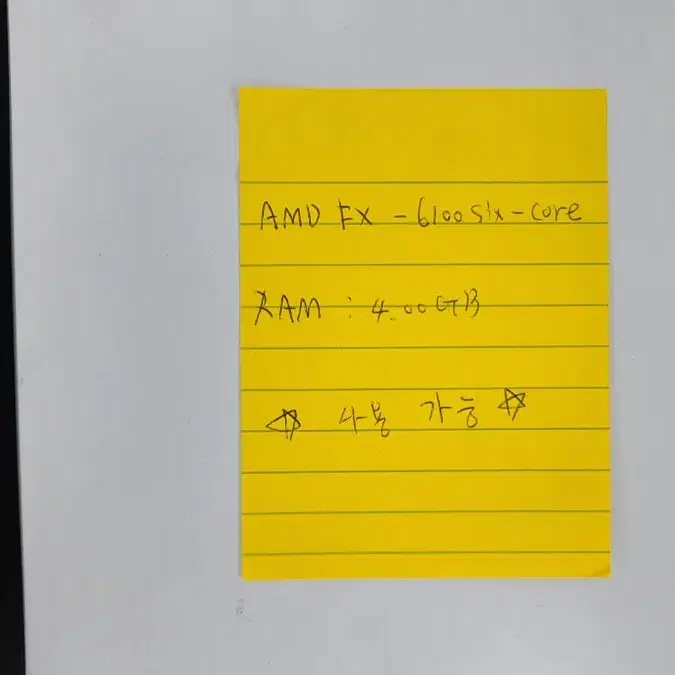 AMD FX - 6100 six-core
RAM : 4.00GB
☆ 사용 가능 ☆